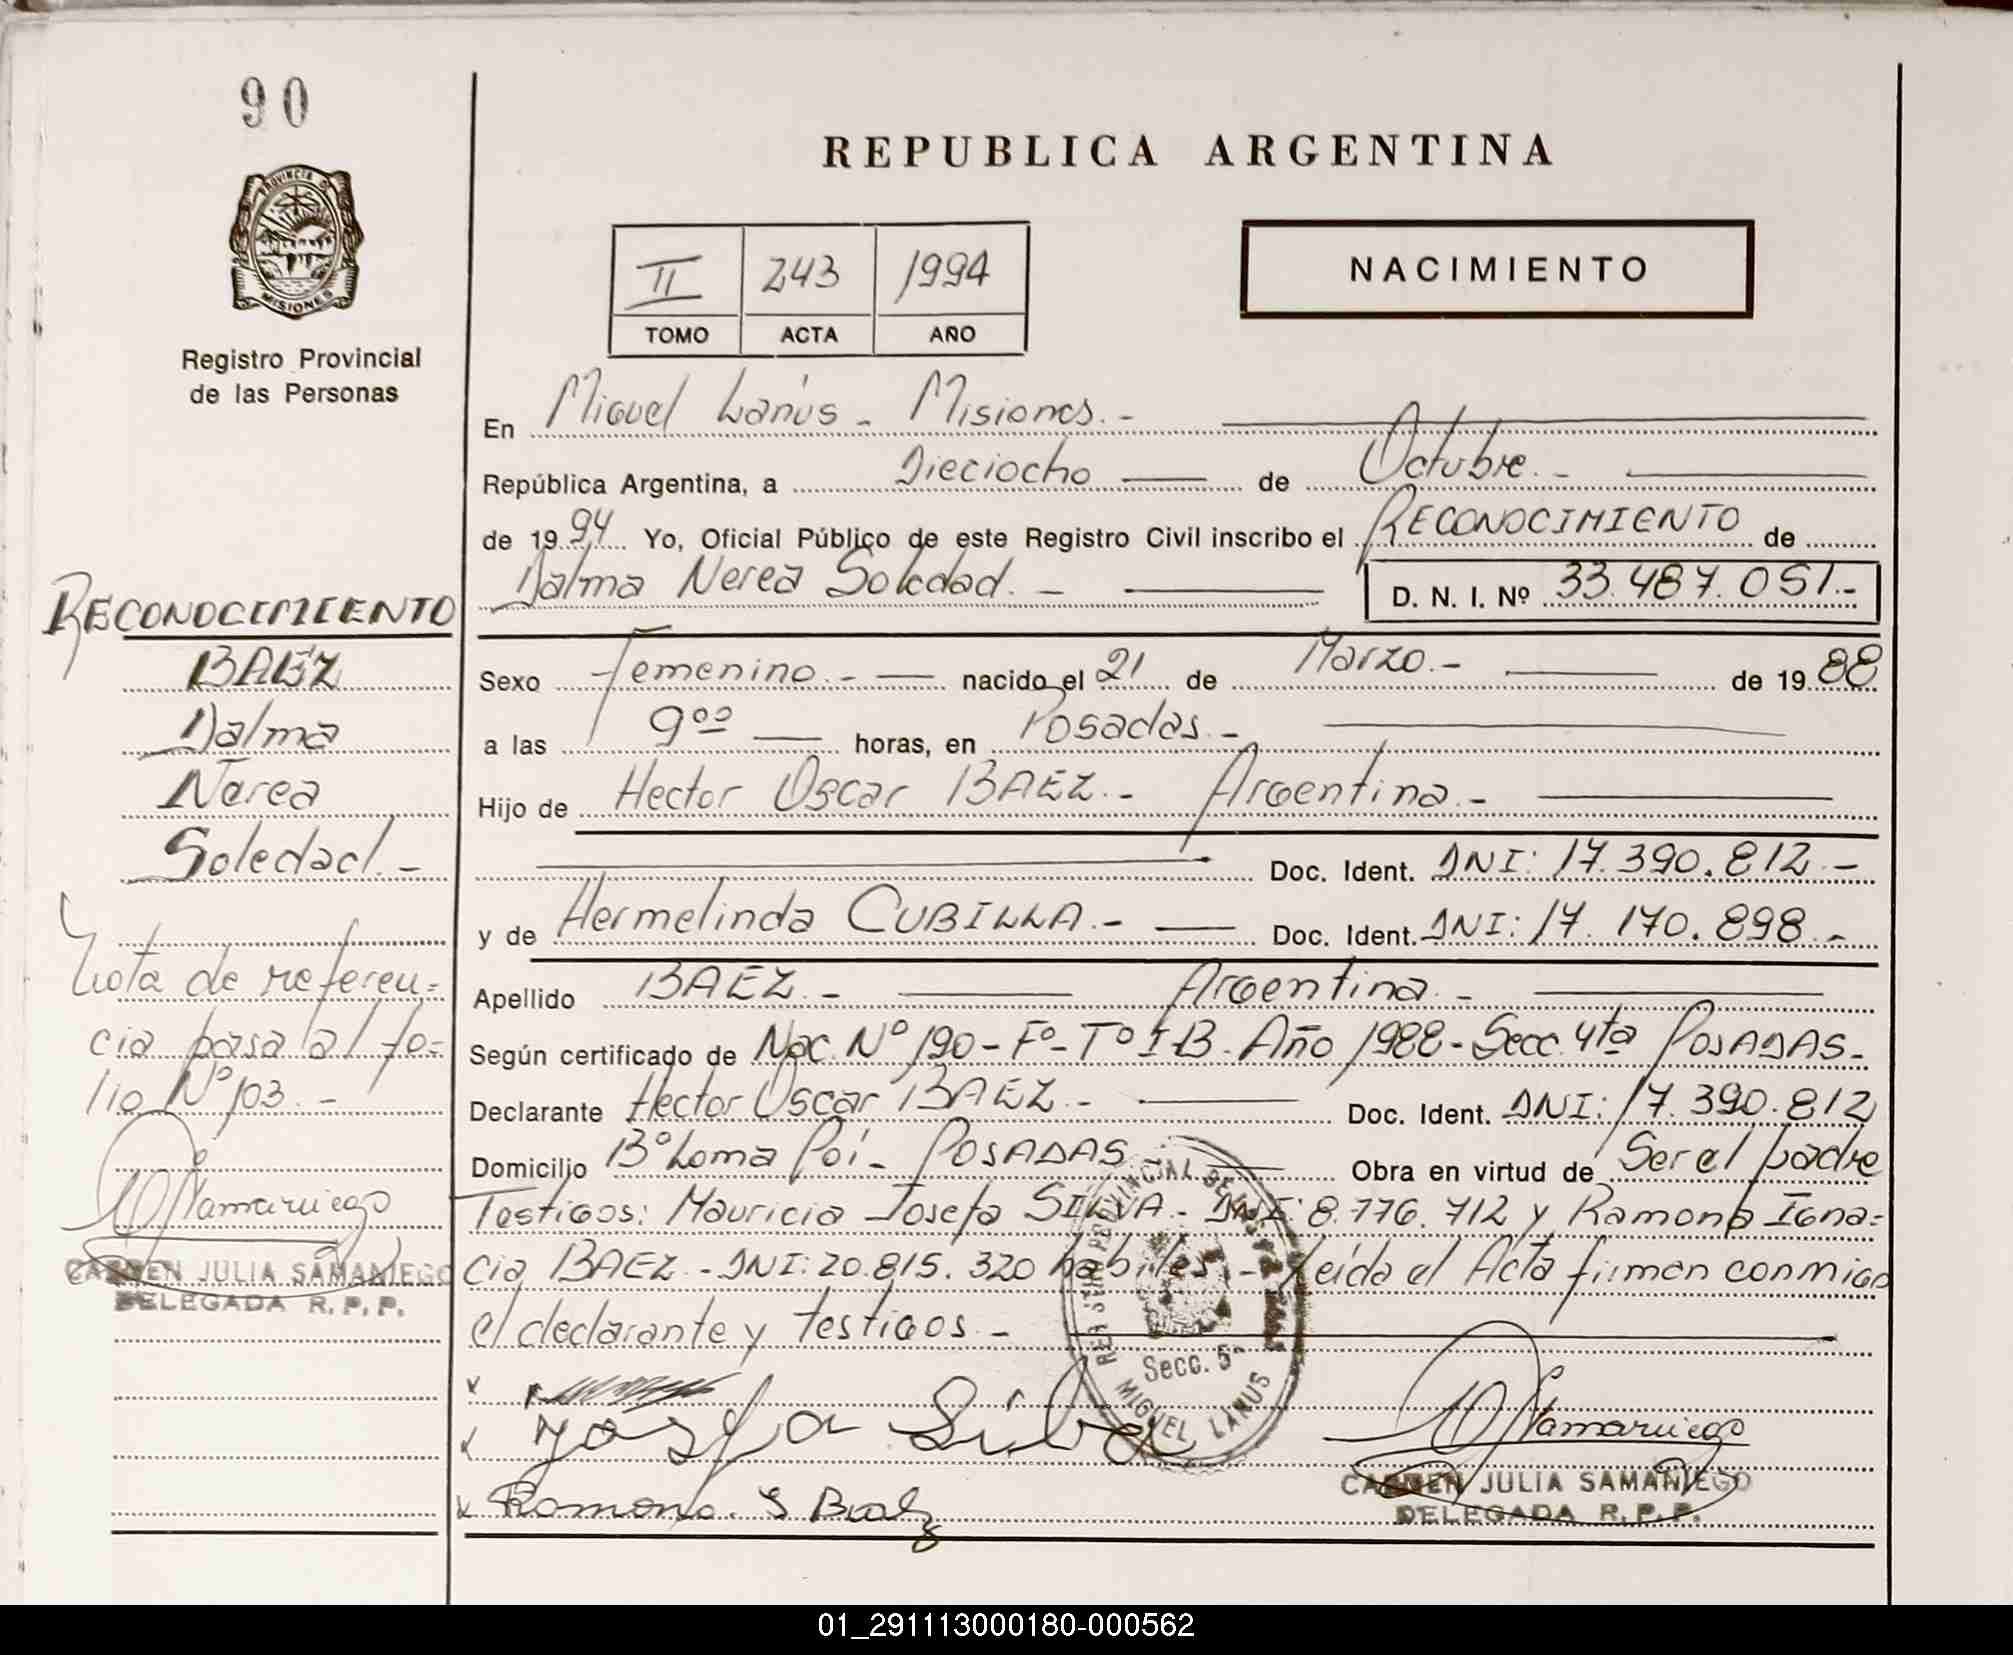 90
PROVINCIA DE
MISIONES
Registro Provincial
de las Personas
REPUBLICA ARGENTINA
II 243 1994
TOMO ACTA AÑO
NACIMIENTO
En Miguel Lanús - Misiones. -
República Argentina, a Dieciocho de Octubre. -
de 1994 Yo, Oficial Público de este Registro Civil inscribo el RECONOCIMIENTO de
Dalma Nerea Soledad. - D. N. I. Nº 33.487.051.-
Sexo Femenino. - nacido el 21 de Marzo. - de 1988
a las 9ºº horas, en Posadas. -
Hijo de Hector Oscar BAEZ. - Argentina. -
Doc. Ident. DNI: 17.390.812. -
y de Hermelinda CUBILLA. - Doc. Ident. DNI: 17.170.898. -
Apellido BAEZ. - Argentina. -
Según certificado de Nac. Nº 190 - Fº - Tº I-B. Año 1988 - Secc. 4ta POSADAS. -
Declarante Hector Oscar BAEZ. - Doc. Ident. DNI: 17.390.812
Domicilio Bº Loma Poí - POSADAS Obra en virtud de Ser el padre
Testigos: Mauricia Josefa SILVA - DNI: 8.776.712 y Ramona Igna=
cia BAEZ. - DNI: 20.815.320 habiles - Leída el Acta firman conmigo
el declarante y testigos. -
Josefa Silva
Ramona. I Baez
REGISTRO PROVINCIAL DE LAS PERSONAS
Secc. 5ª
MIGUEL LANUS
Samaniego
CARMEN JULIA SAMANIEGO
DELEGADA R. P. P.
RECONOCIMIENTO
BAEZ
Dalma
Nerea
Soledad. -
Nota de referen=
cia pasa al fo=
lio Nº 103. -
Samaniego
CARMEN JULIA SAMANIEGO
DELEGADA R. P. P.
01_291113000180-000562